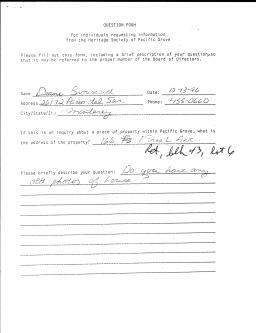 QUESTION FORM
For individuals requesting information
from the Heritage Society of Pacific Grove
Please fill out this form, including a brief description of your question so
that it may be referred to the proper member of the Board of Directors.
Name Diane Date: 10-13-96
Address 26172 Paseo del Sur Phone: 455-0660
City/State/Zip Monterey
If this is an inquiry about a piece of property within Pacific Grove, what is
the address of the property? 165 Ave
blk 43, lot 6
Please briefly describe your question: Do you have any
old photos of house